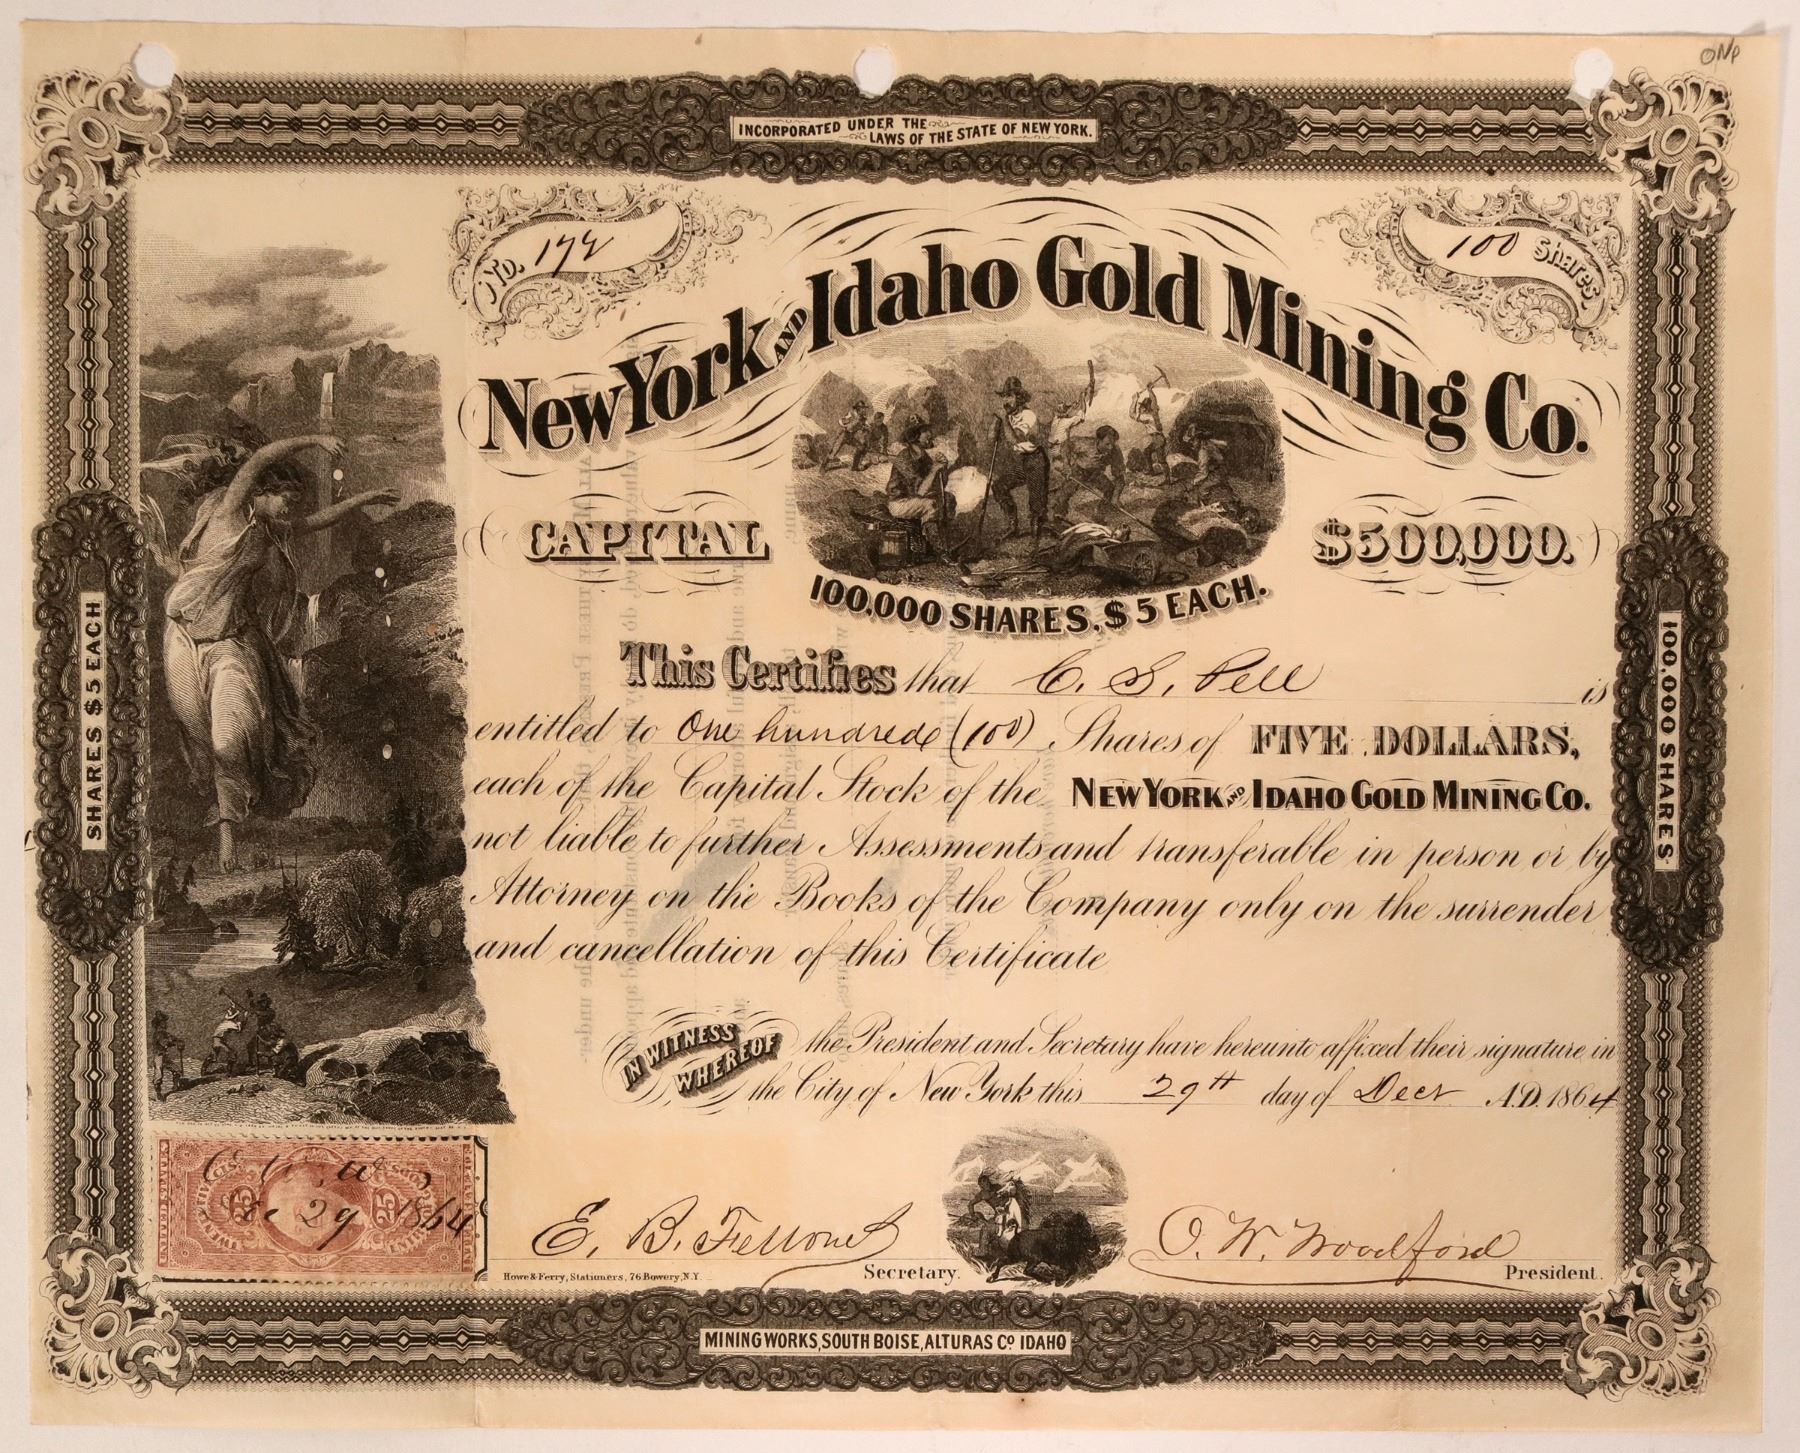 ONP
INCORPORATED UNDER THE
LAWS OF THE STATE OF NEW YORK.
No. 172
100 Shares
New York AND Idaho Gold Mining Co.
CAPITAL $500,000.
100,000 SHARES, $5 EACH.
SHARES $5 EACH
100,000 SHARES
This Certifies that C. S. Pell is
entitled to One hundred (100) Shares of FIVE DOLLARS,
each of the Capital Stock of the NEW YORK AND IDAHO GOLD MINING CO.
not liable to further Assessments and transferable in person or by
Attorney on the Books of the Company only on the surrender
and cancellation of this Certificate
IN WITNESS WHEREOF the President and Secretary have hereunto affixed their signature in
the City of New York this 29th day of Decr A.D. 1864
25 25
Dec 29 1864
E. B. Fellows
Secretary.
O. W. Woodford
President.
Howe & Ferry, Stationers, 76 Bowery, N.Y.
MINING WORKS, SOUTH BOISE, ALTURAS Co. IDAHO